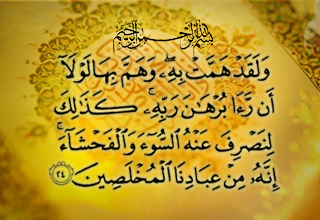 بسم الله الرحمن الرحيم
وَلَقَدْ هَمَّتْ بِهِۦ وَهَمَّ بِهَا لَوْلَآ
أَن رَّءَا بُرْهَٰنَ رَبِّهِۦ كَذَٰلِكَ
لِنَصْرِفَ عَنْهُ ٱلسُّوٓءَ وَٱلْفَحْشَآءَ
إِنَّهُۥ مِنْ عِبَادِنَا ٱلْمُخْلَصِينَ ٢٤